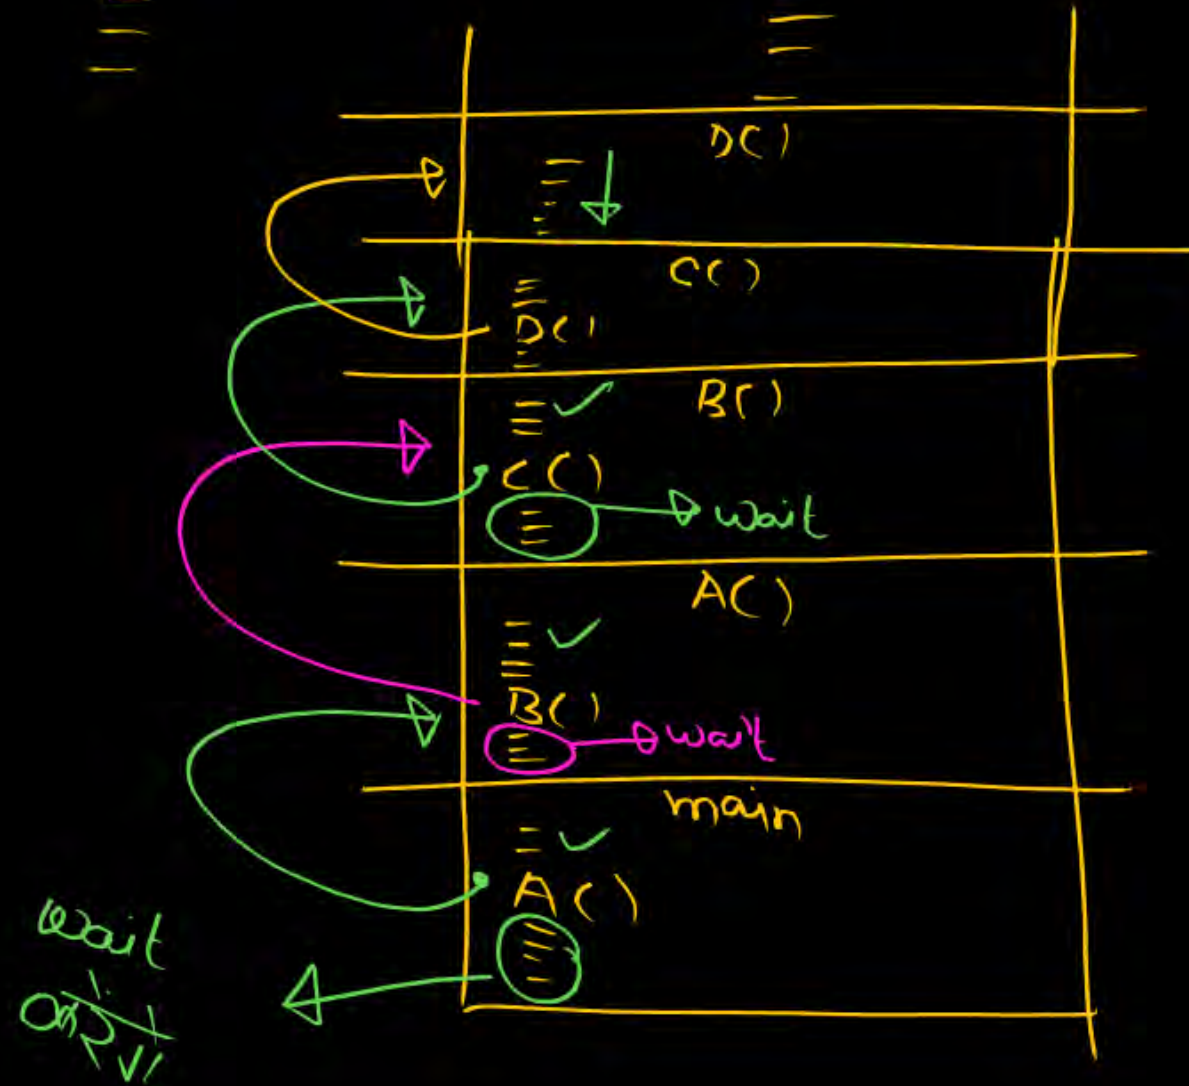 D()
C()
D()
B()
C()
wait
A()
B()
wait
main
A()
wait